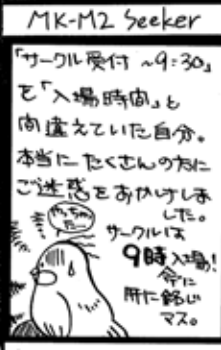 MK-M2 Seeker
「サークル受付 ~9:30」
を「入場時間」と
間違えていた自分。
本当にたくさんの方に
ご迷惑をおかけしま
した。
やっちゃ
たー
サークルは
9時入場!
今に
肝に銘じ
マス。